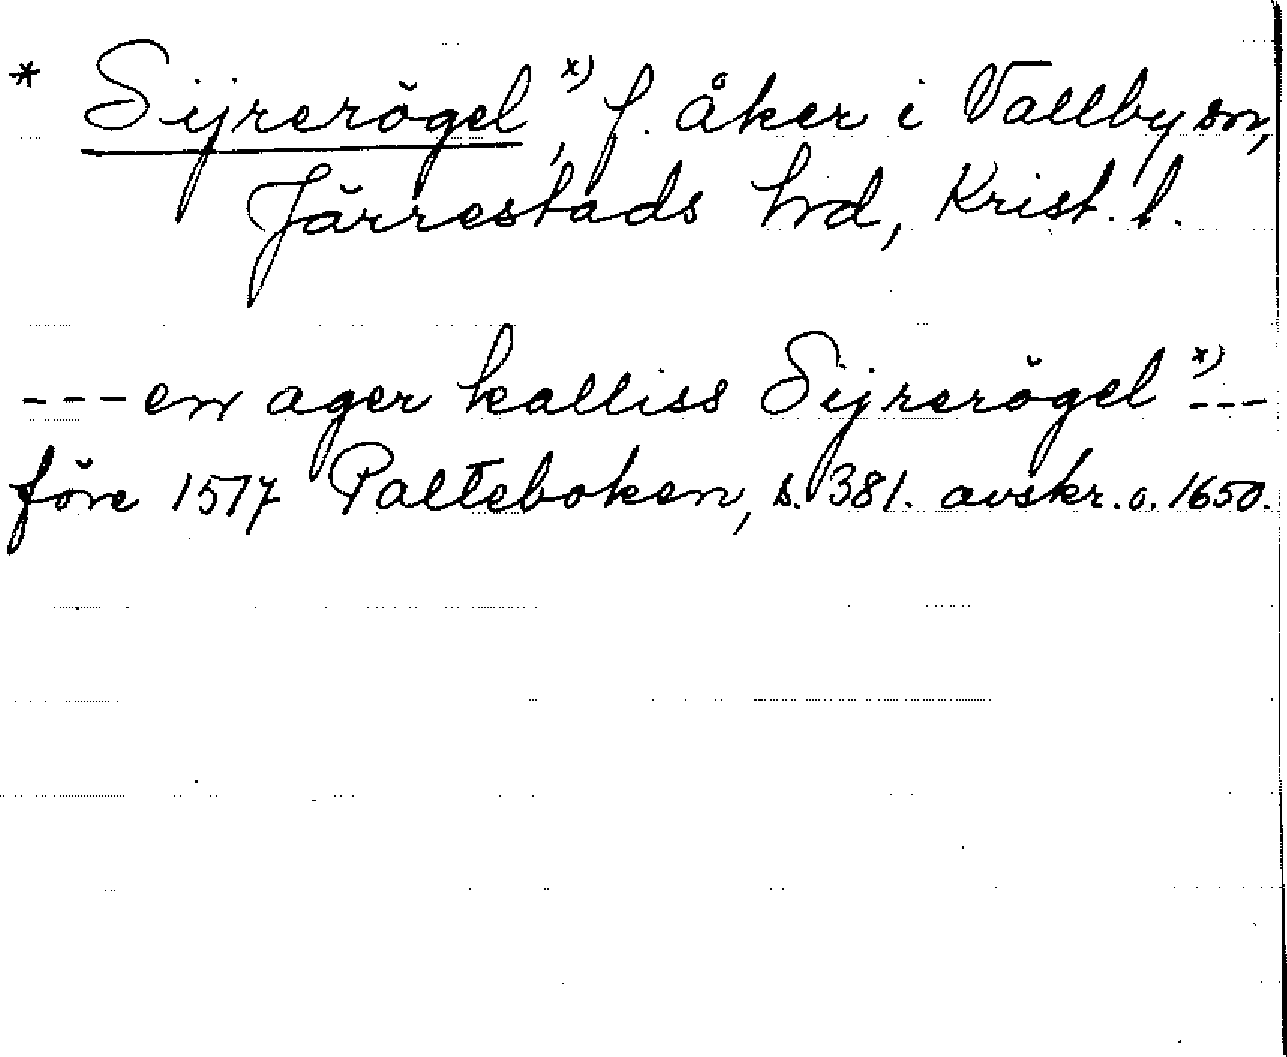 * Sijrerögel x), f. åker i Vallby sn,
Järrestads hd, Krist. l.
---en ager kalliss Sijrerögel x)---
före 1517 Palteboken, s. 381. avskr. o. 1650.